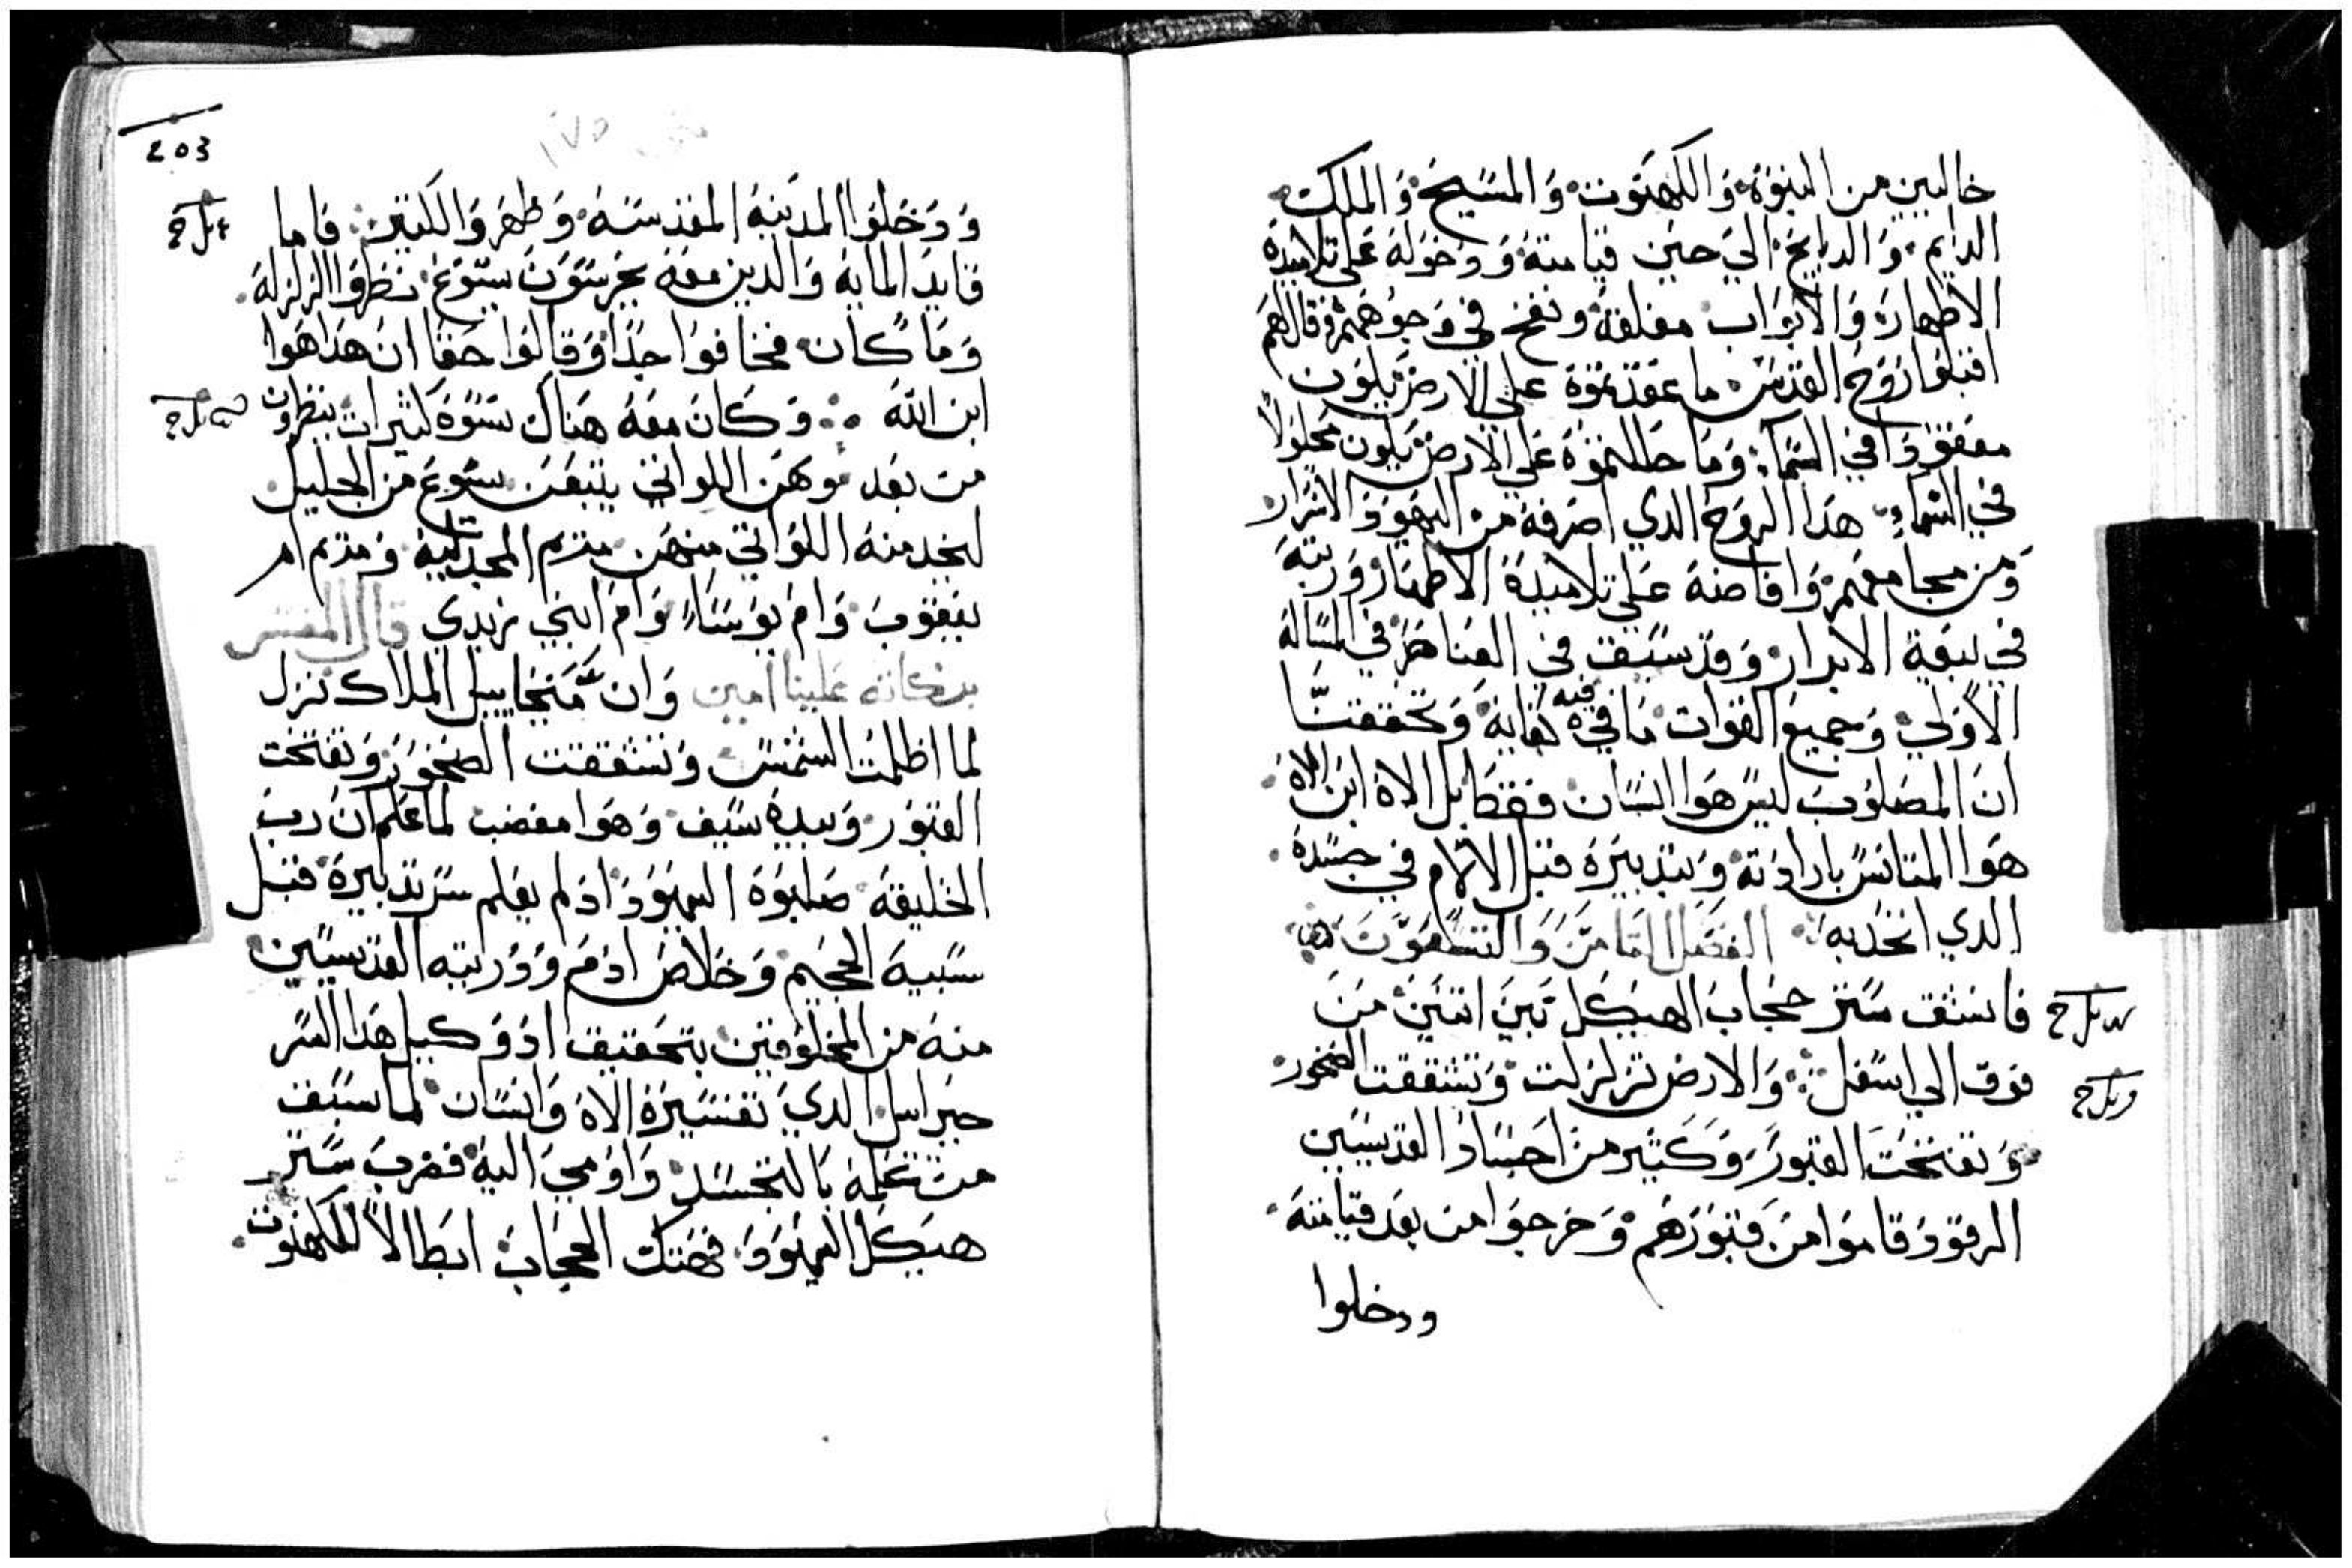 خاليين من النبوة والكهنوت والمسيح والملك
الدايم والدبايح الي حين قيامتة ودخولة علي تلاميدة
الاطهارة والابواب مغلقة ونفخ في وجوههم وقال لهم
اقبلوا روح القدس ما عقدتموة علي الارض يكون
معقودا في السماء وما حاللتموة علي الارض يكون محلولاً
في السماء هدا الروح الدي اصرفة من اليهود الاشرار
ومن مجامعهم وافاضة علي تلاميدة الاطهار وورتبة
في بيعة الابرار وقد سبق في العناصر في المسالة
الاولي وجميع القوات ما في فيه كفاية وتحققتا
ان المصلوب ليس هوا انسان فقط بل الاة ابن الاة
هوا المتانس بارادتة وبتدبيرة قبل الالام في جسدة
الدي اتحد به الفصل التامن والتسعون
فانشق ستر حجاب الهيكل بين اتنين من
فوق الي اسفل والارض تزلزلت وتشققت الصخور
وتفتحت القبور وكتير من اجساد القديسيين
الرقود قاموا من قبورهم وخرجوا من بعد قيامتة
ودخلوا
203
١٧٥
ودخلوا المدينة المقدسة وظهروا لكتير فاما
قايد الماية والدين معة يحرسون يسوع نظروا الزلزلة
وما كان فخافوا جدًا وقالوا حقا ان هدا هوا
ابن الله وكان معة هناك نسوة كتيرات ينظرون
من بعد وهن اللواتي يتبعن يسوع من الجليل
لخدمتة اللواتي منهن مريم المجدلية ومريم ام
يعقوب وام يوساء وام ابني زبدي قال المفسر
بركاته علينا امين وان ميخاييل الملاك نزل
لما اظلمت الشمس وتشققت الصخور وتفتحت
القبور وبيدة سيف وهوا مغضب لما علم ان رب
الخليقة صلبوة اليهود اد لم يعلم ستر تدبيرة قبل
سبية الجحيم وخلاص ادم ودريته القديسيين
منة من المخلوقين بتحقيق اد وكيل هدا السر
جبراييل الدي تفسيرة الاة وانسان لما سبق
من علمة بالتجسد واومي الية فضرب ستر
هيكل اليهود فهتك الحجاب ابطالاً للكهنوت